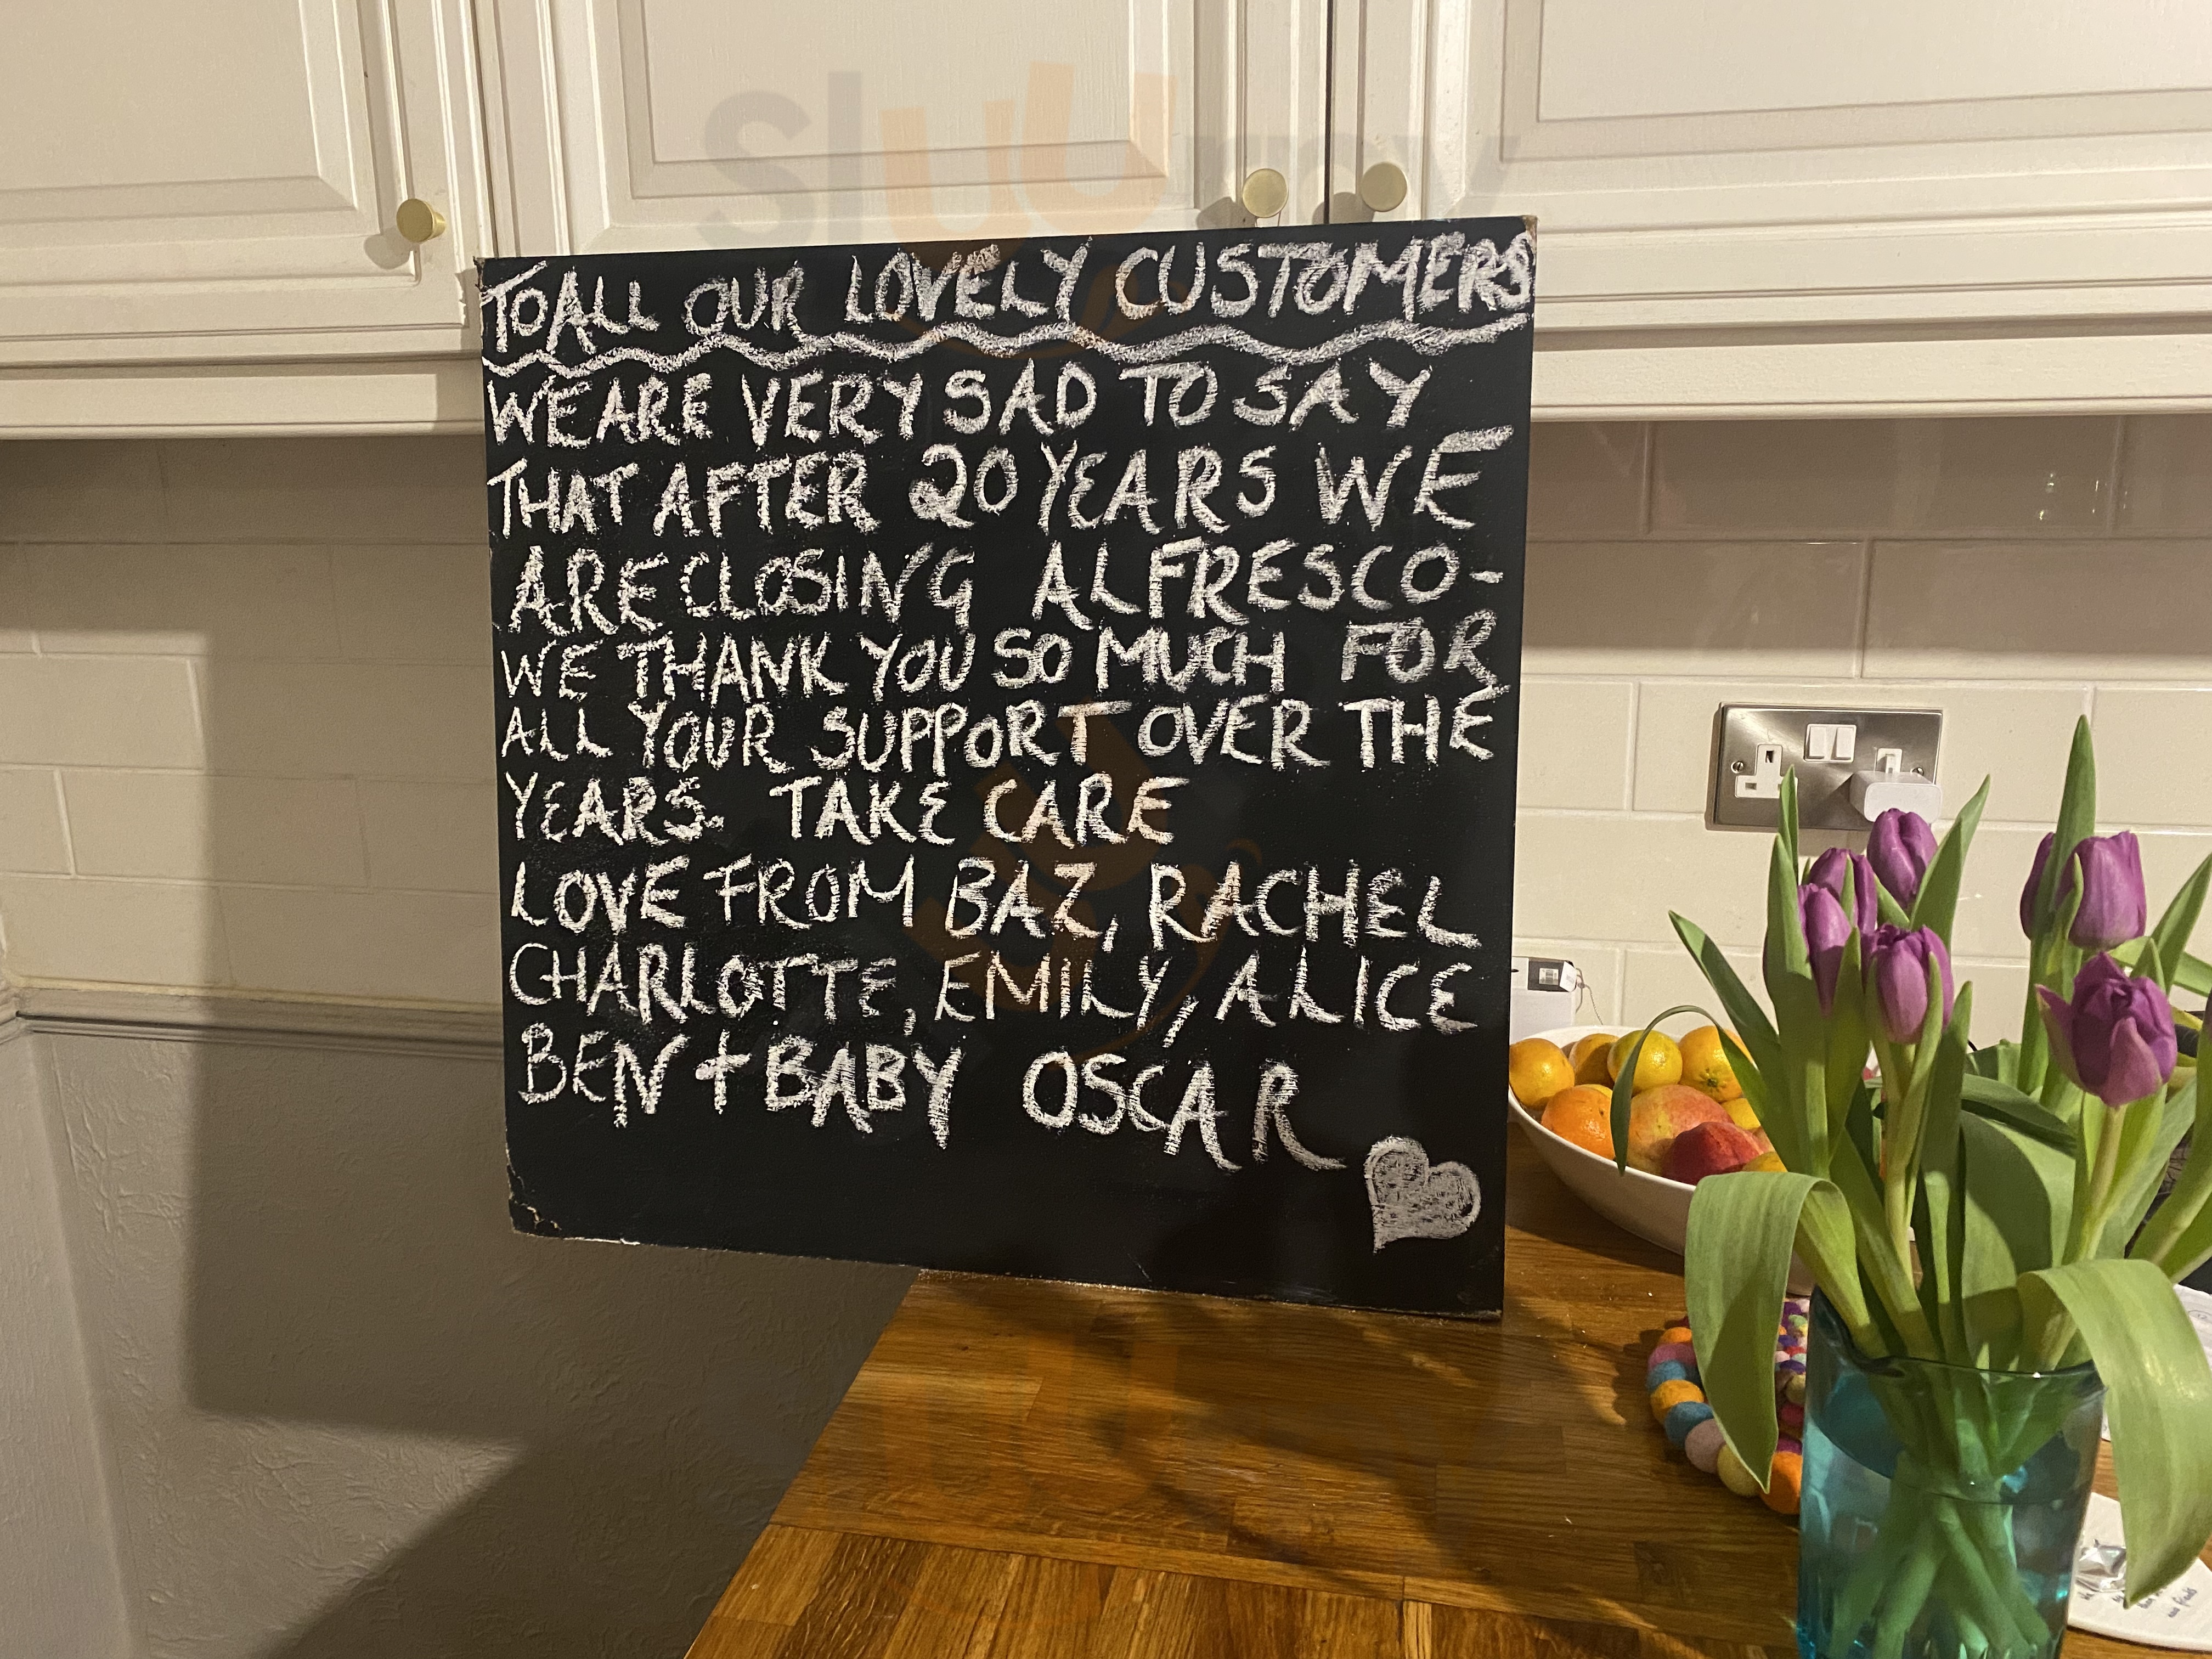 Sluurpy
TO ALL OUR LOVELY CUSTOMERS
WE ARE VERY SAD TO SAY
THAT AFTER 20 YEARS WE
ARE CLOSING ALFRESCO-
WE THANK YOU SO MUCH FOR
ALL YOUR SUPPORT OVER THE
YEARS. TAKE CARE
LOVE FROM BAZ, RACHEL
CHARLOTTE, EMILY, ALICE
BEN + BABY OSCAR